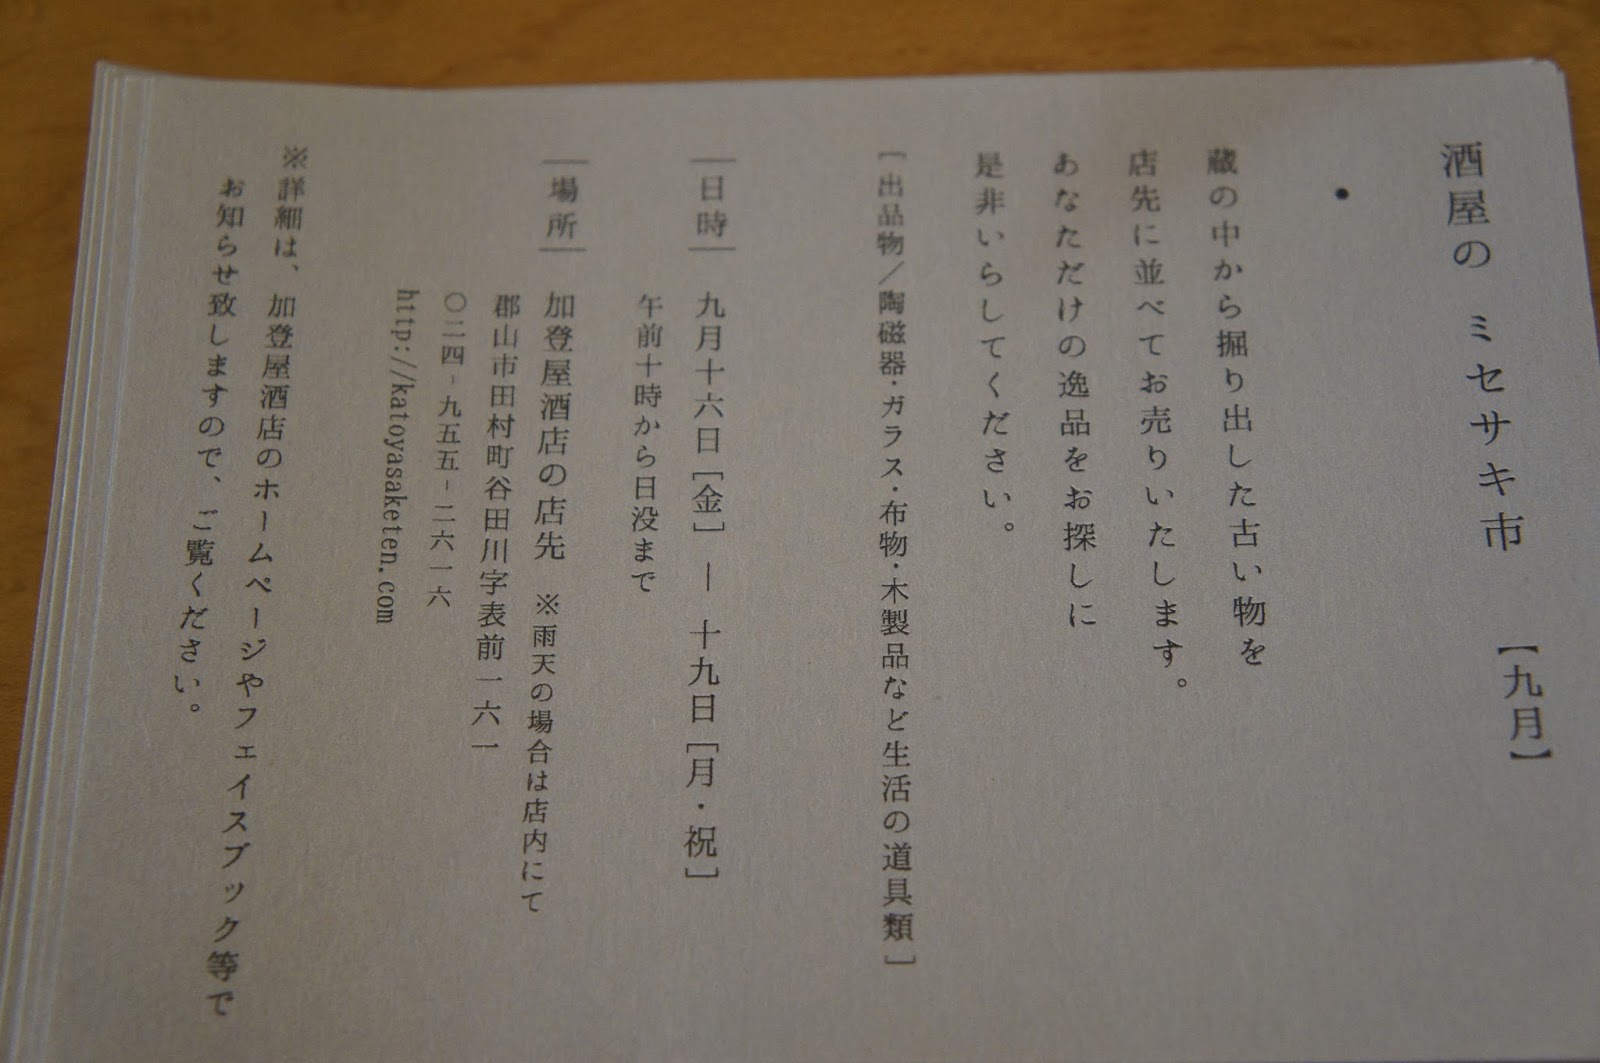 酒屋の ミセサキ市 【九月】
●
蔵の中から掘り出した古い物を
店先に並べてお売りいたします。
あなただけの逸品をお探しに
是非いらしてください。
［出品物／陶磁器・ガラス・布物・木製品など生活の道具類］
｜日時｜ 九月十六日［金］ ― 十九日［月・祝］
午前十時から日没まで
｜場所｜ 加登屋酒店の店先 ※雨天の場合は店内にて
郡山市田村町谷田川字表前一六一
〇二四-九五五-二六一六
http://katoyasaketen.com
※詳細は、加登屋酒店のホームページやフェイスブック等で
お知らせ致しますので、ご覧ください。